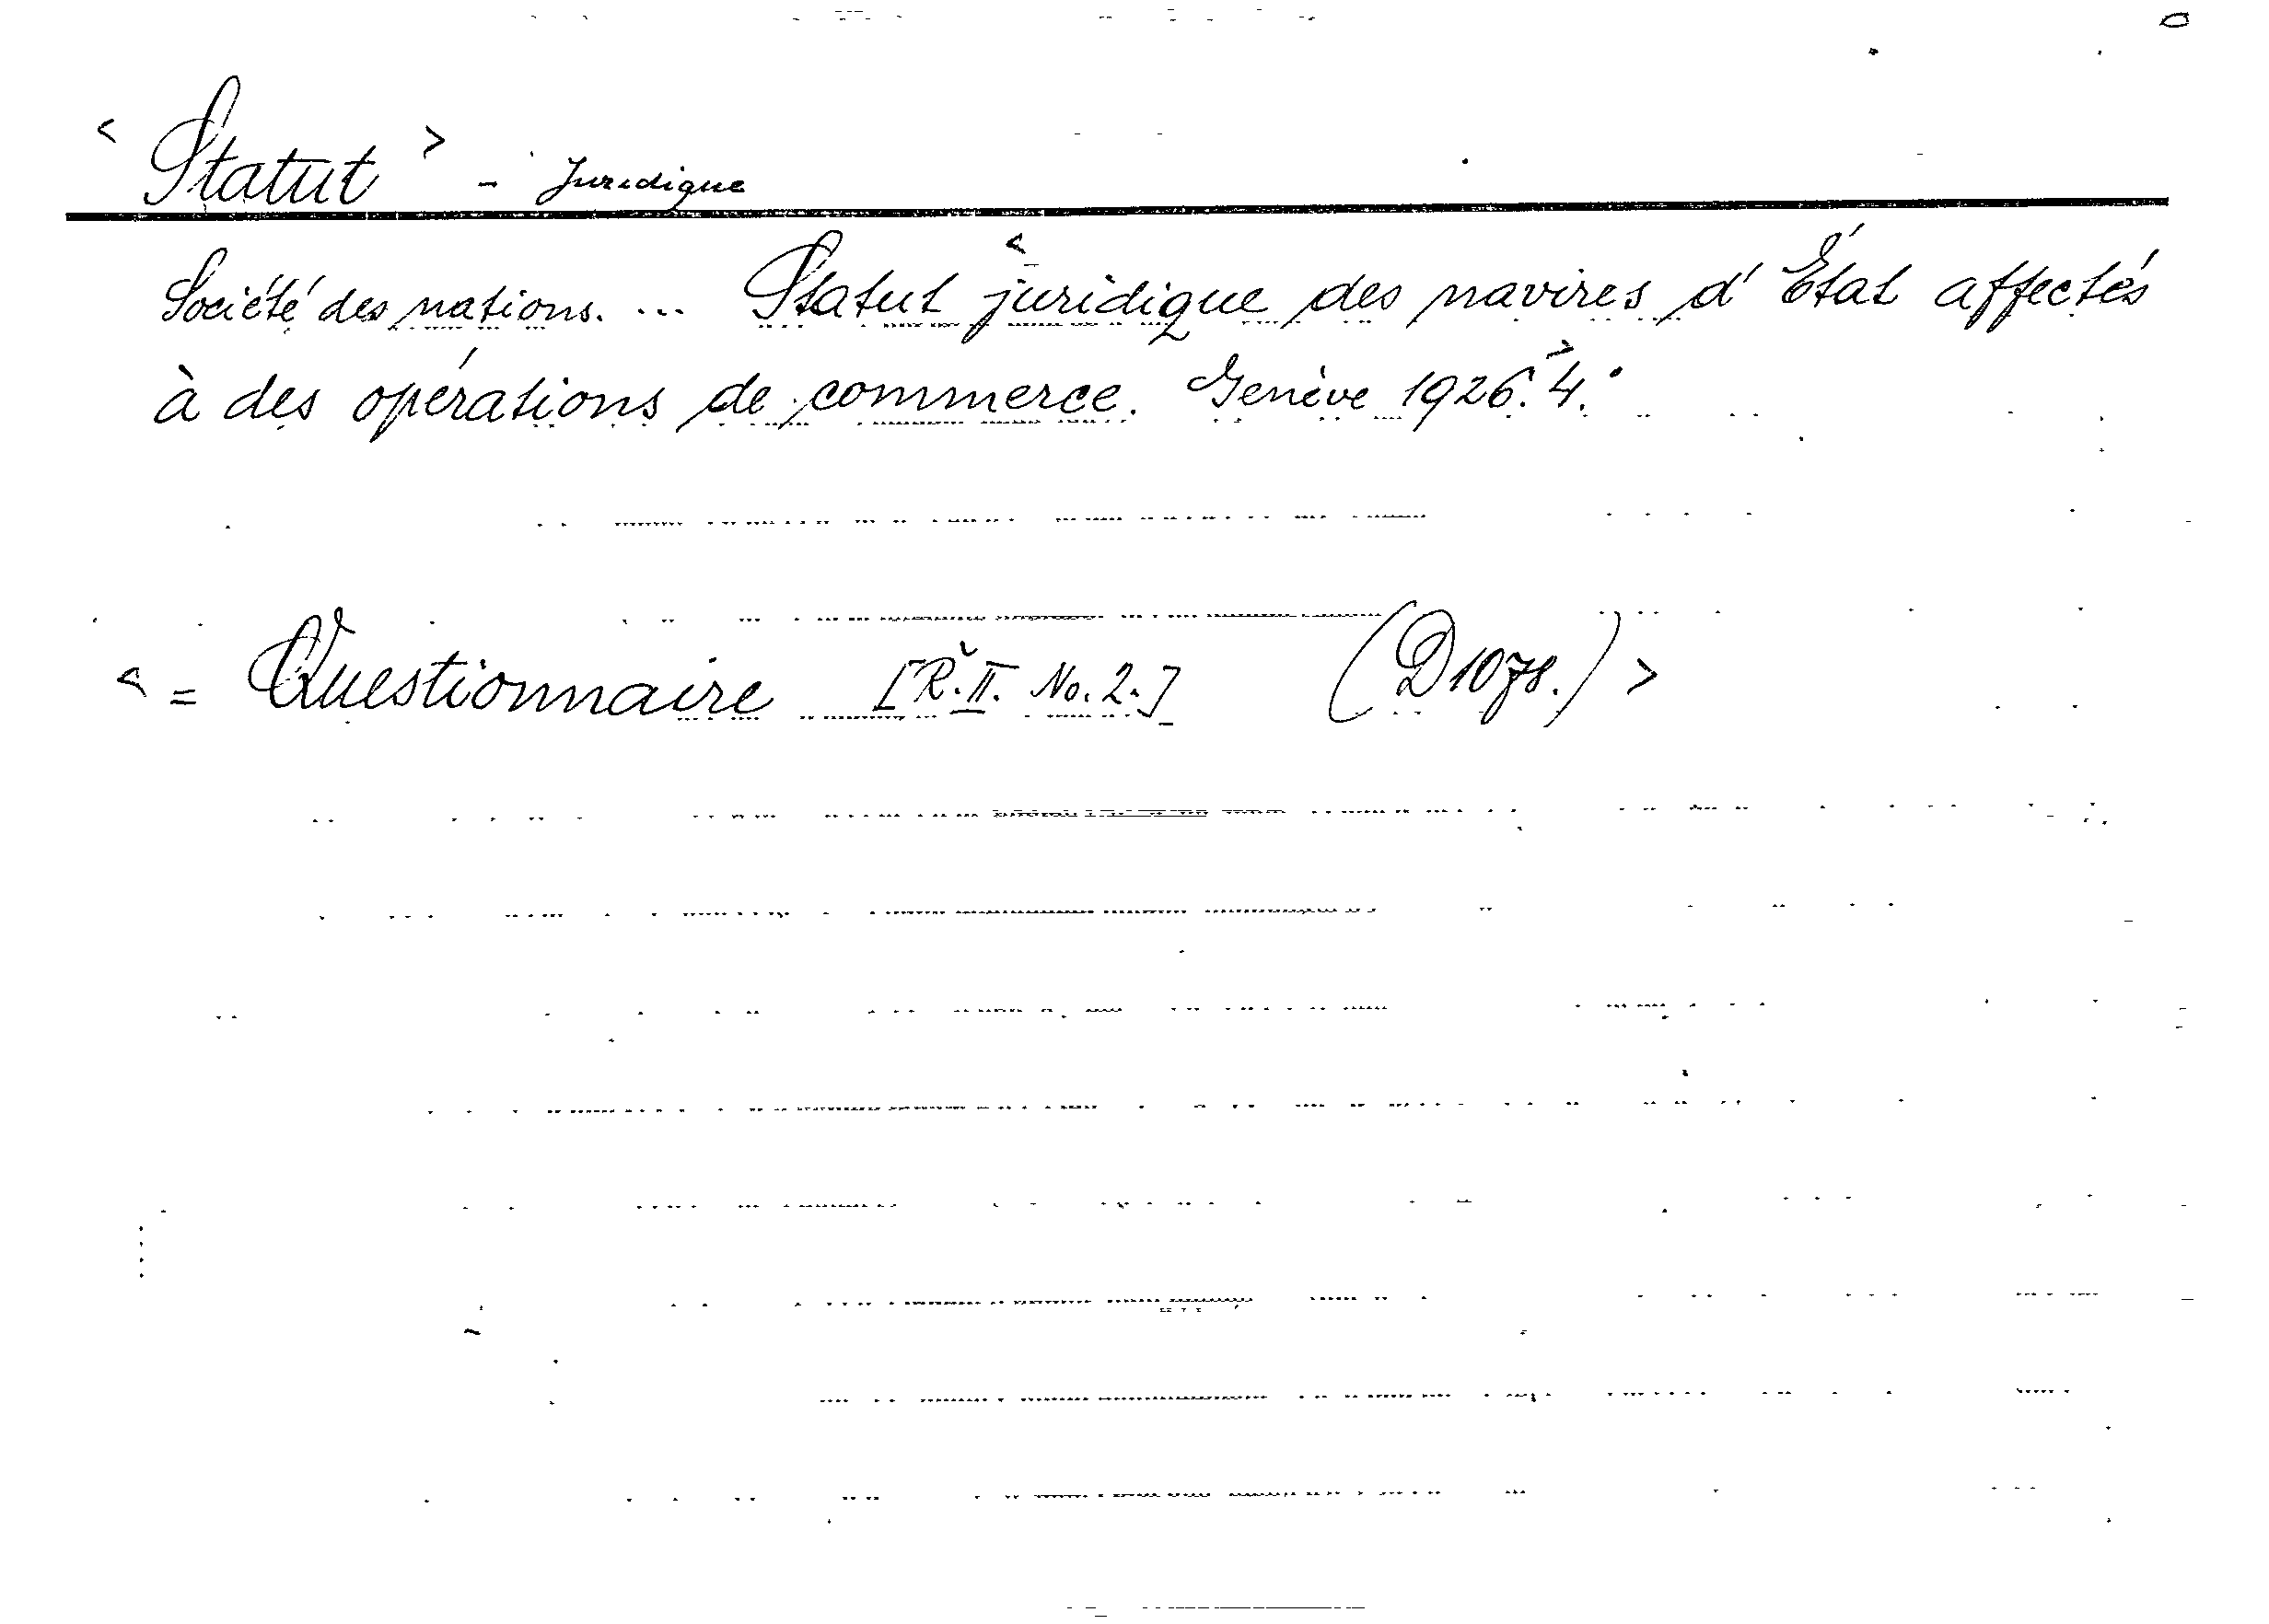 < Statut > - Juridique
Société des nations. ... Statut < juridique des navires d'État affectés
à des opérations de commerce. Genève 1926. > 4.°
< = Questionnaire [R. II. No. 2.] (D1078.) >